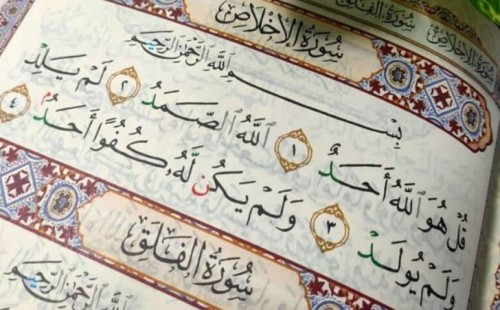 سُورَةُ الإِخْلَاصِ سُورَةُ الفَلَقِ
سُورَةُ الإِخْلَاصِ
بِسْمِ ٱللَّهِ ٱلرَّحْمَٰنِ ٱلرَّحِيمِ
قُلْ هُوَ ٱللَّهُ أَحَدٌ ١ ٱللَّهُ ٱلصَّمَدُ ٢ لَمْ يَلِدْ
وَلَمْ يُولَدْ ٣ وَلَمْ يَكُن لَّهُۥ كُفُوًا أَحَدُۢ ٤
سُورَةُ الفَلَقِ
ٱللَّهِ ٱلرَّحْمَٰنِ ٱلرَّحِيمِ